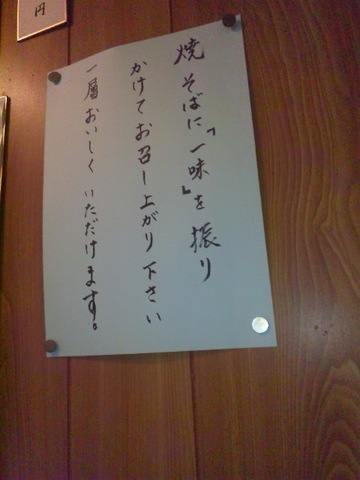 焼そばに『一味』を振り
かけてお召し上がり下さい
一層おいしくいただけます。
円